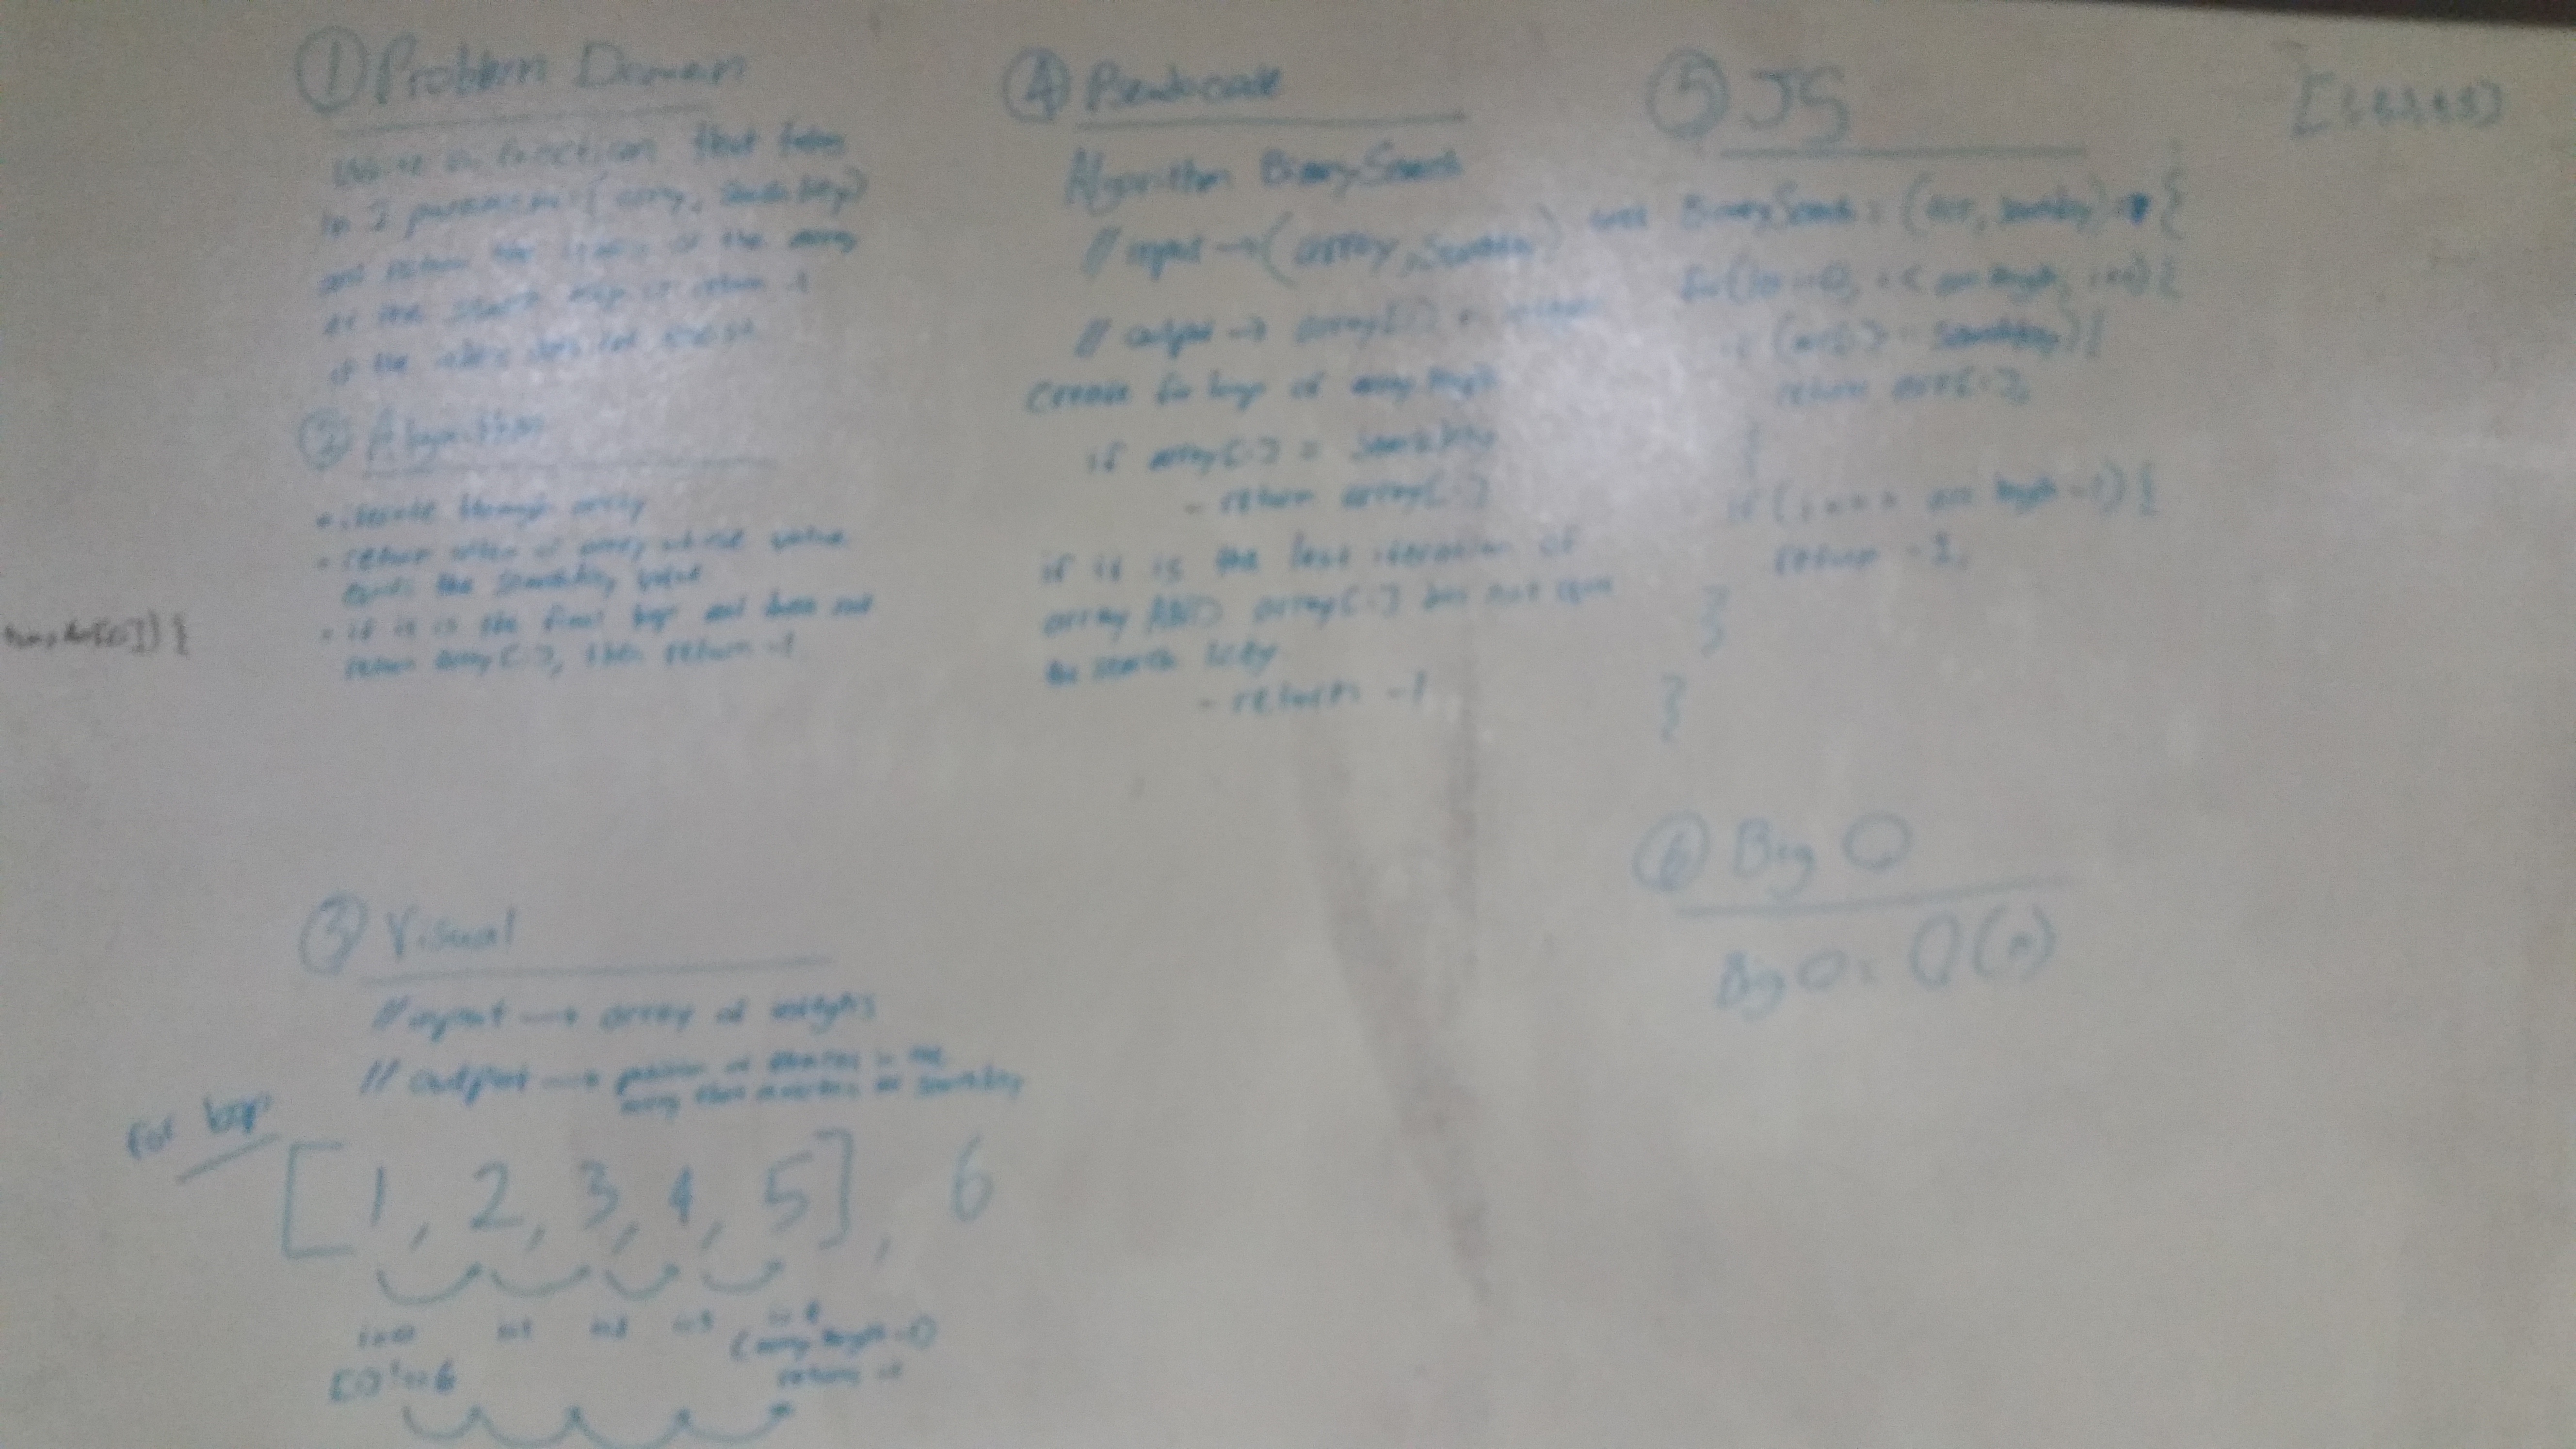 ① Problem Domain
Write a function that takes
in 2 parameters (array, searchkey)
and return the index of the array
at the search key or return -1
if the index does not exist.
② Algorithm
• iterate through array
• return index of array whose value
equals the searchkey value
• if it is the final loop and does not
return array[i], then return -1
③ Visual
// input → array of
// output → position of element in the
array that matches the searchkey
for loop
[1, 2, 3, 4, 5], 6
i=0 i=1 i=2 i=3 i=4
(array length -1)
return -1
[0] != 6
④ Pseudocode
Algorithm BinarySearch
// input → (array, searchkey)
// output → array[i]
Create for loop of array.length
if array[i] = searchkey
- return array[i]
if it is the last iteration of
array AND array[i] does not equal
the search key
- return -1
⑤ JS
BinarySearch = (arr, searchkey) => {
for( i=0; i < arr.length; i++) {
if (arr[i] searchkey) {
return arr[i];
}
if (i === arr.length -1) {
return -1;
}
}
}
⑥ Big O
Big O: O(n)